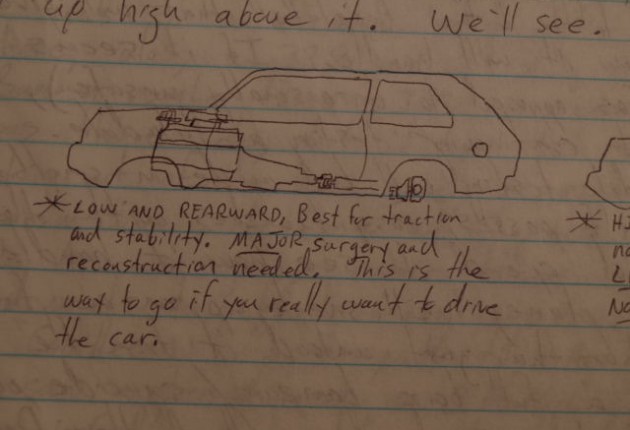 up high above it. We'll see.
* LOW AND REARWARD, Best for traction
and stability. MAJOR surgery and
reconstruction needed. This is the
way to go if you really want to drive
the car.
* HI
no
L
No